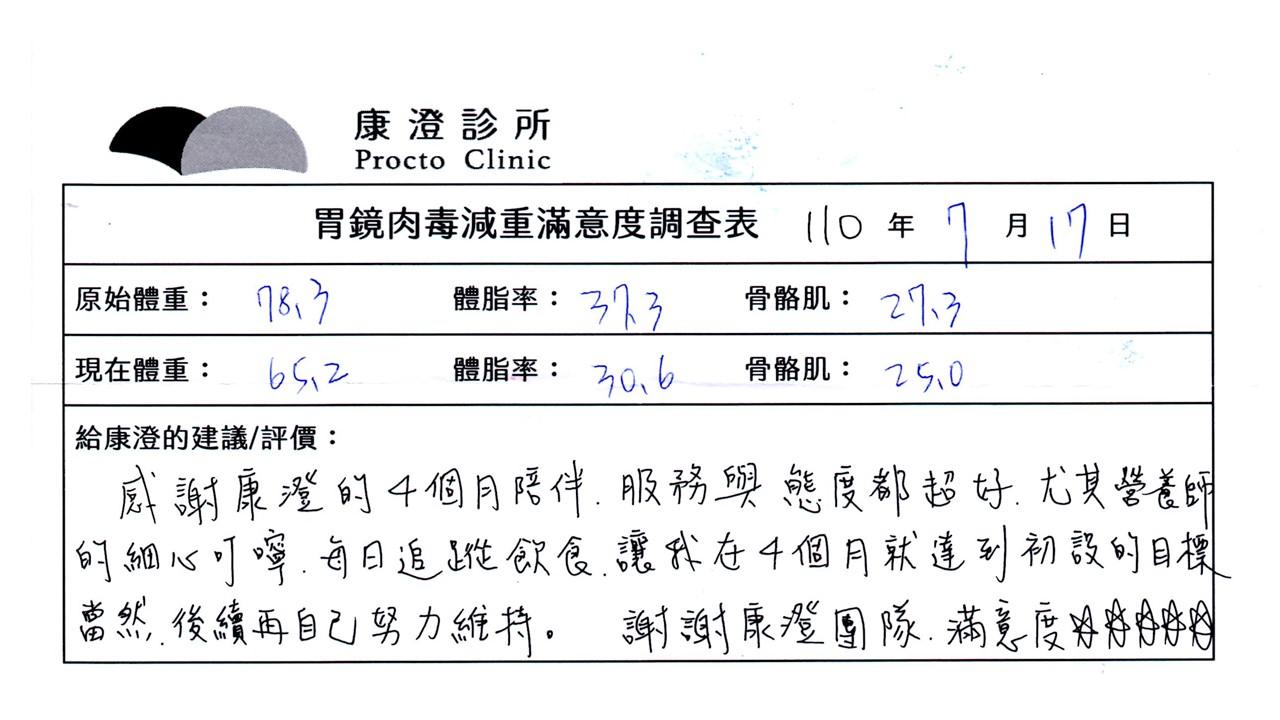 康澄診所
Procto Clinic
胃鏡肉毒減重滿意度調查表 110 年 7 月 17 日
原始體重： 78.3 體脂率： 37.3 骨骼肌： 27.3
現在體重： 65.2 體脂率： 30.6 骨骼肌： 25.0
給康澄的建議/評價：
感謝康澄的4個月陪伴. 服務與態度都超好. 尤其營養師
的細心叮嚀. 每日追蹤飲食. 讓我在4個月就達到初設的目標
當然. 後續再自己努力維持。 謝謝康澄團隊. 滿意度☆☆☆☆☆